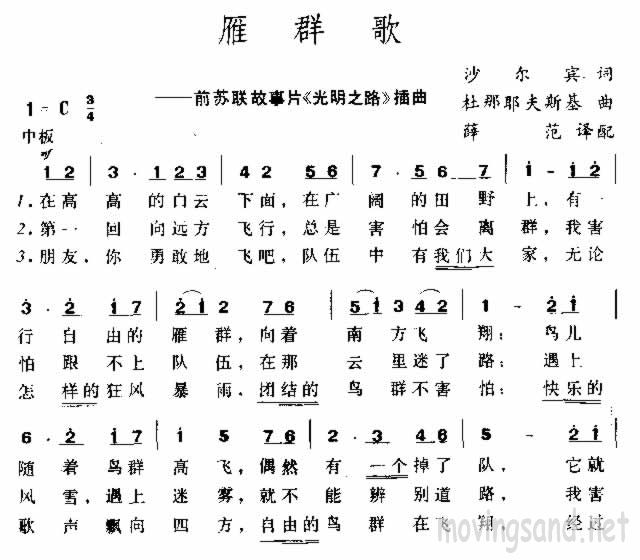 雁群歌
——前苏联故事片《光明之路》插曲
沙尔宾 词
杜那耶夫斯基 曲
薛范 译配
1=C 3/4
中板
mf
1 2 | 3 · 1 2 3 | 4 2 5 6 | 7 · 5 6 7 | 1 - 1 2 |
1. 在高高的白云下面,在广阔的田野上,有一
2. 第一回向远方飞行,总是害怕会离群,我害
3. 朋友,你勇敢地飞吧,队伍中有我们大家,无论
3 · 2 1 7 | 2 1 2 7 6 | 5 3 4 2 | 1 - 2 1 |
行自由的雁群,向着南方飞翔;鸟儿
怕跟不上队伍,在那云里迷了路;遇上
怎样的狂风暴雨,团结的鸟群不害怕;快乐的
6 · 2 1 7 | 1 5 7 6 | 2 · 3 4 6 | 5 - 2 1 |
随着鸟群高飞,偶然有一个掉了队,它就
风雪,遇上迷雾,就不能辨别道路,我害
歌声飘向四方,自由的鸟群在飞翔,经过
movingsand.net